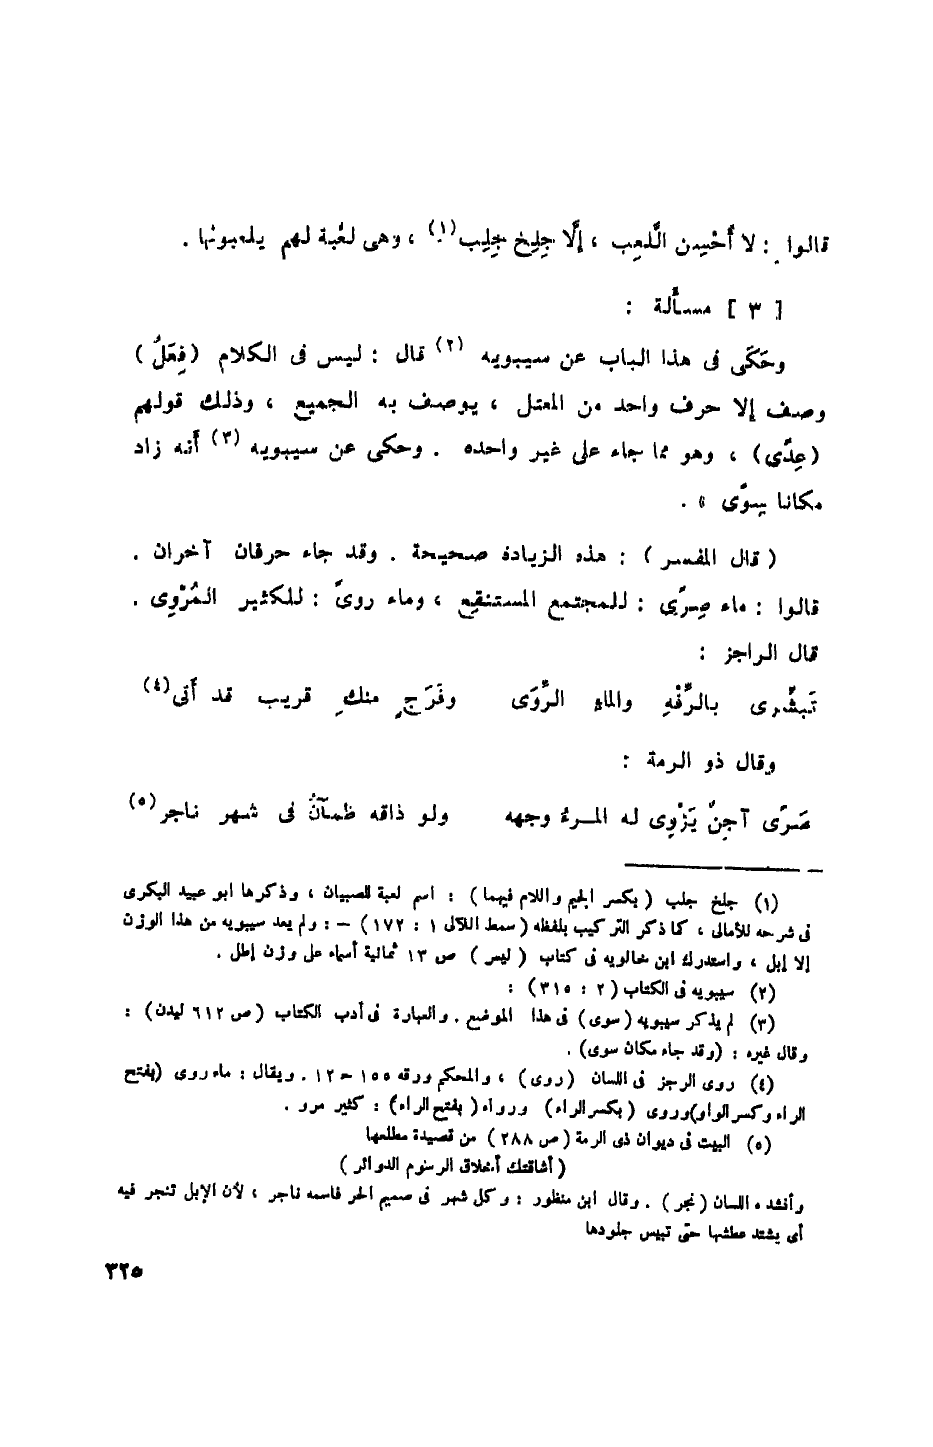 قالوا : لا أَحْسِن اللَّعِب ، إلَّا جِلِخ جِلِب(١) ، وهى لعُبة لهم يلعبونها .
[ ٣ ] مسألة :
وحَكَى فى هذا الباب عن سيبويه (٢) قال : ليس فى الكلام (فِعَلٌ)
وصف إلا حرف واحد من المعتل ، يوصف به الجميع ، وذلك قولهم
(عِدًى) ، وهو مما جاء على غير واحده . وحكى عن سيبويه (٣) أنه زاد
مكانا سِوًى » .
( قال المفسر ) : هذه الزيادة صحيحة . وقد جاء حرفان آخران .
قالوا : ماء صِرًى : للمجتمع المستنقِع ، وماء روىً : للكثير المُرْوِى .
قال الراجز :
تَبشَّرى بالرِّفْهِ والماءِ الرِّوَى وفَرَجٍ منكِ قريب قد أَتى(٤)
وقال ذو الرمة :
صَرًى آجنٌ يَزْوِى له المرءُ وجهه ولو ذاقه ظمآنُ فى شهر ناجر(٥)
(١) جلخ جلب ( بكسر الجيم واللام فيهما ) : اسم لعبة للصبيان ، وذكرها ابو عبيد البكرى
فى شرحه للأمالى ، كما ذكر التركيب بلفظه ( سمط اللآلى ١ : ١٧٢ ) – : ولم يعد سيبويه من هذا الوزن
إلا إبل ، واستدرك ابن خالويه فى كتاب ( ليس ) ص ١٣ ثمانية أسماء على وزن إطل .
(٢) سيبويه فى الكتاب ( ٢ : ٣١٥ ) :
(٣) لم يذكر سيبويه ( سوى ) فى هذا الموضع . والعبارة فى أدب الكتاب ( ص ٦١٢ ليدن ) :
وقال غيره : (وقد جاء مكان سوى) .
(٤) روى الرجز فى اللسان (روى) ، والمحكم ورقه ١٥٥ – ١٢ . ويقال : ماء روى (بفتح
الراء وكسر الواو)وروى ( بكسر الراء) ورواء( بفتح الراء) : كثير مرو .
(٥) البيت فى ديوان ذى الرمة ( ص ٢٨٨ ) من قصيدة مطلعها
( أشاقتك أخلاق الرسوم الدوائر )
وأنشده اللسان ( نجر ) . وقال ابن منظور : وكل شهر فى صميم الحر فاسمه ناجر ، لأن الإبل تنجر فيه
أى يشتد عطشها حتى تيبس جلودها
٣٢٥